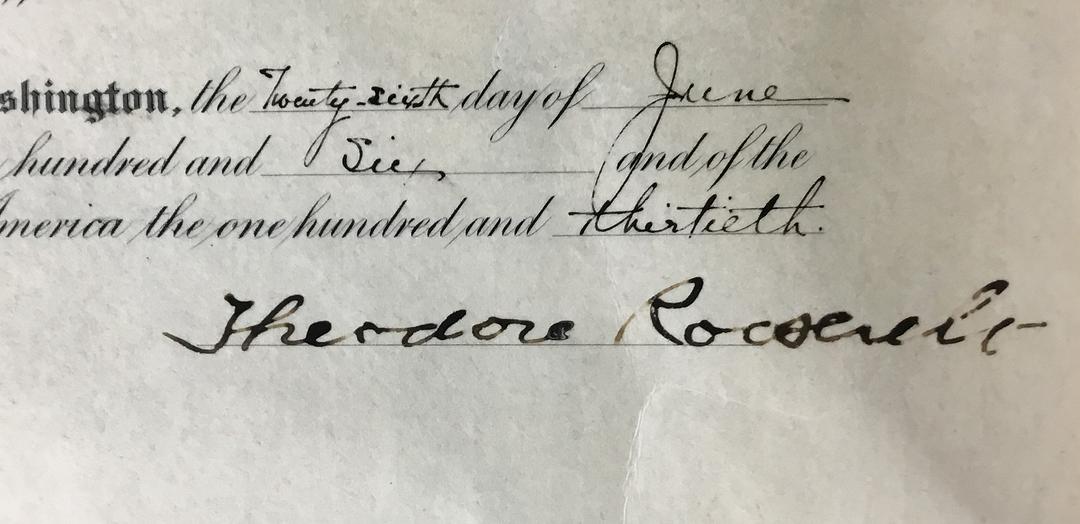 shington, the Twenty-sixth day of June
hundred and Six, and of the
merica the one hundred and thirtieth.
Theodore Roosevelt